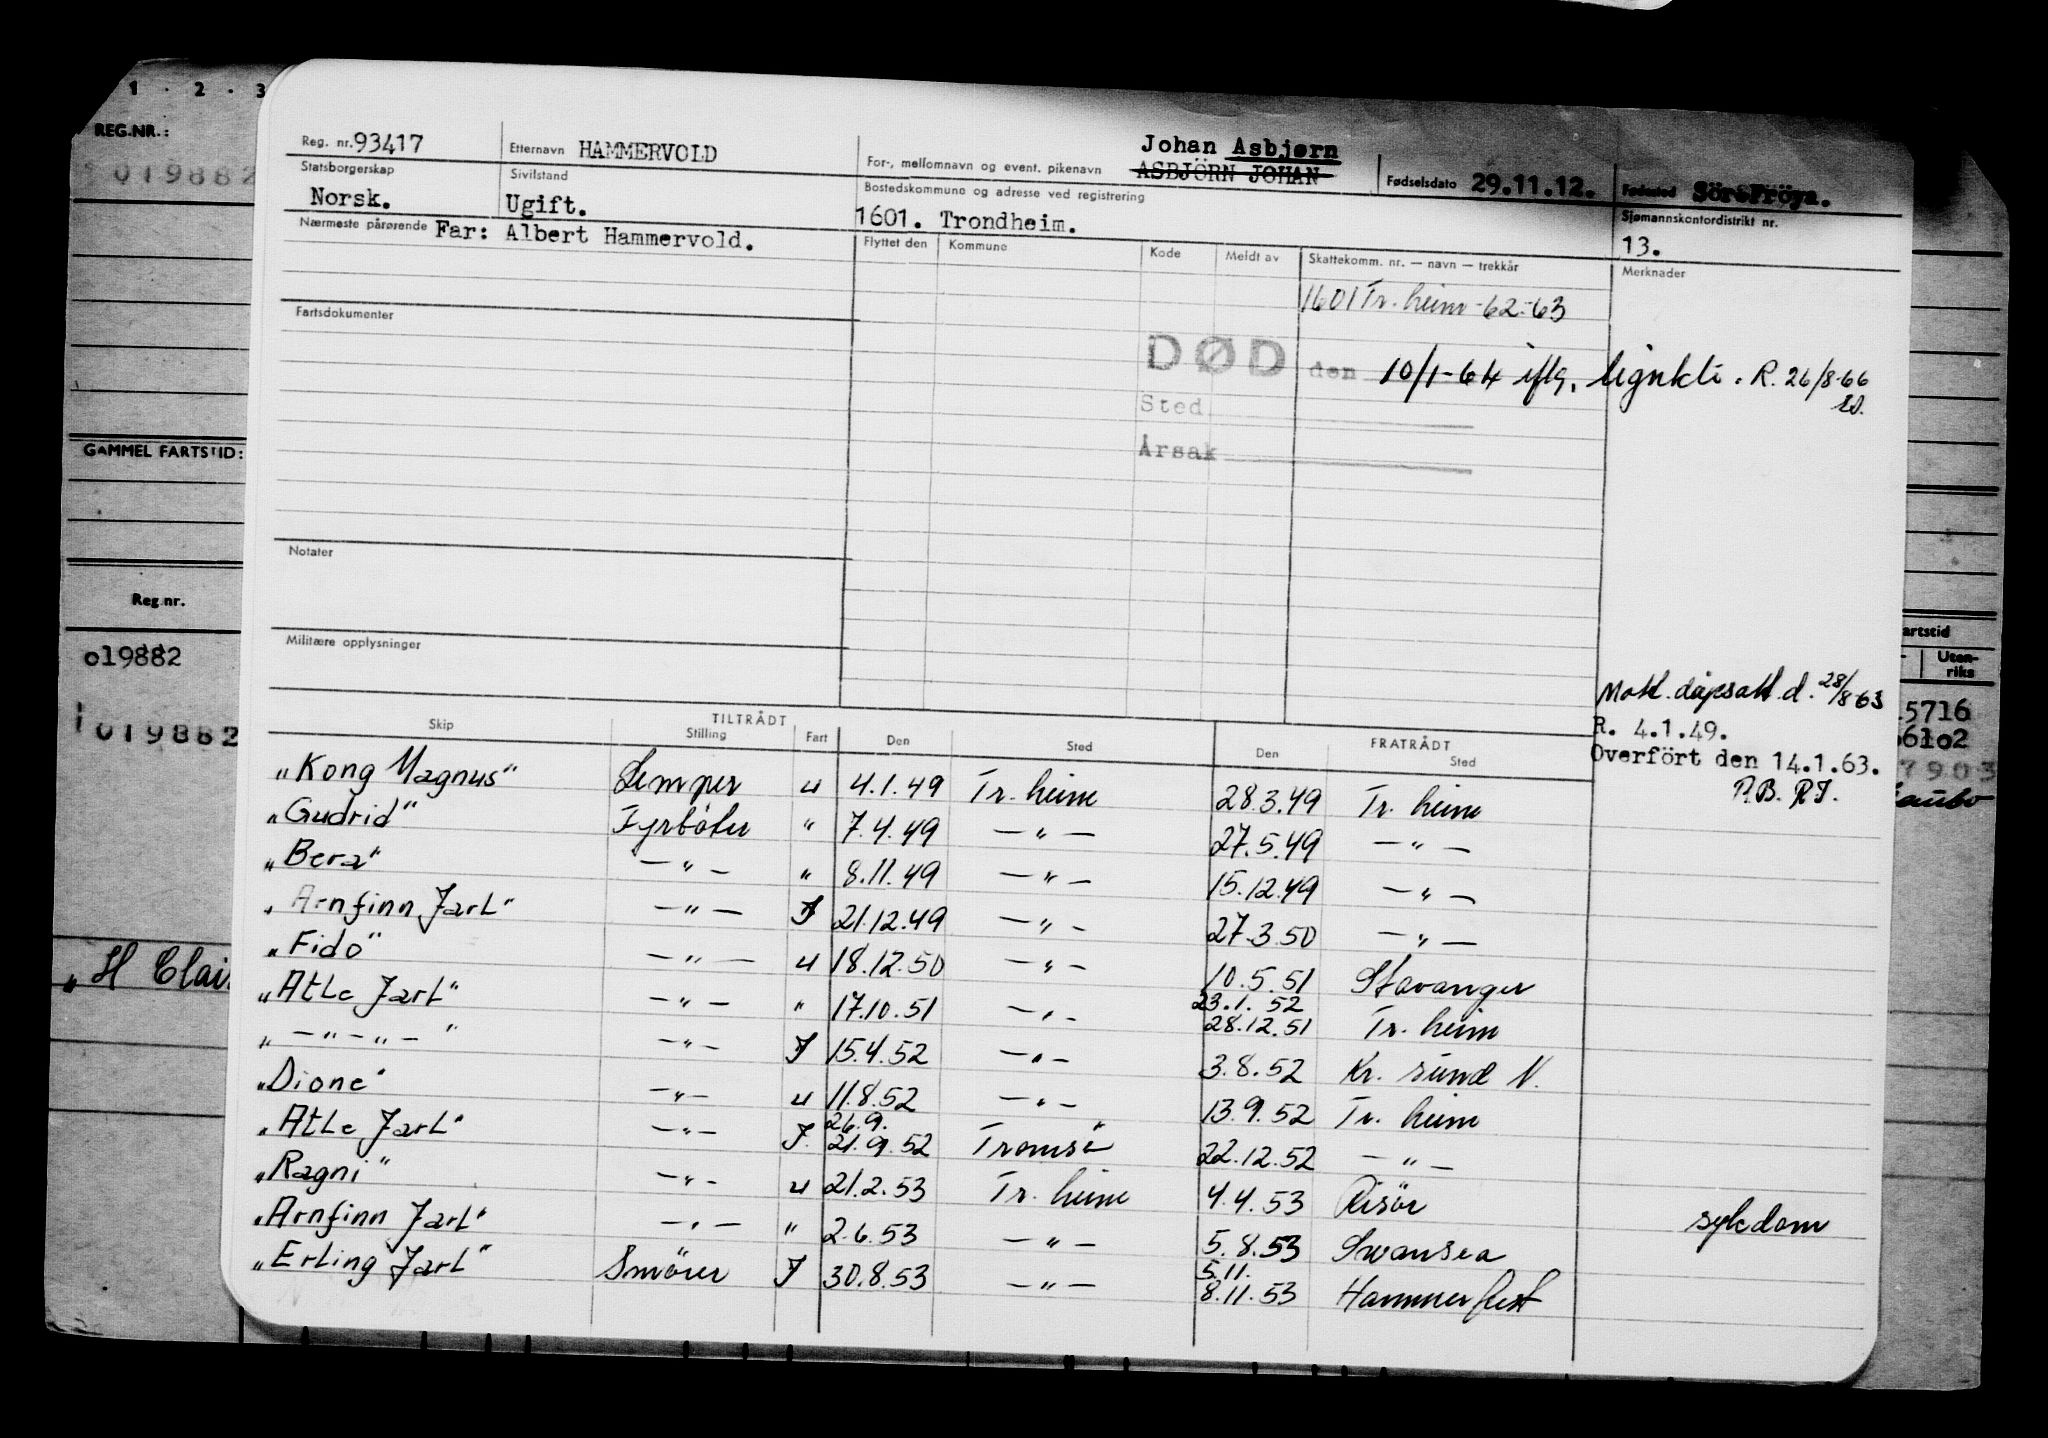 1 · 2 · 3
REG.NR.:
019882
GAMMEL FARTSTID:
Reg.nr.
o19882
019882
„H Clai
Reg. nr. 93417 Etternavn HAMMERVOLD For-, mellomnavn og event. pikenavn Johan Asbjørn Fødselsdato 29.11.12. Fødested Sör-Fröya.
ASBJÖRN JOHAN
Statsborgerskap Sivilstand Bostedskommune og adresse ved registrering Sjømannskontordistrikt nr.
Norsk. Ugift. 1601. Trondheim. 13.
Nærmeste pårørende Far: Albert Hammervold. Flyttet den Kommune Kode Meldt av Skattekomm. nr. — navn — trekkår Merknader
1601 Tr. heim -62-63
Fartsdokumenter
DØD den 10/1-64 iflg. lignkti. R. 26/8-66
Sted
Årsak
Notater
Militære opplysninger
Mott. dåpsatt. d. 28/8-63
R. 4.1.49.
Overfört den 14.1.63.
P.B. RJ.
artstid
Uten-
riks
15716
61o2
7903
TILTRÅDT FRATRÅDT
Skip Stilling Fart Den Sted Den Sted
„Kong Magnus" Lemper u 4.1.49 Tr. heim 28.3.49 Tr. heim
„Gudrid" Fyrböter " 7.4.49 — " — 27.5.49 — " —
„Bera" — " — " 8.11.49 — " — 15.12.49 — " —
„Arnfinn Jarl" — " — J 21.12.49 — " — 27.3.50 — " —
„Fido" — " — u 18.12.50 — " — 10.5.51 Stavanger
„Atle Jarl" — " — " 17.10.51 — " — 23.1.52 28.12.51 Tr. heim
„ — " — " — " — " — J 15.4.52 — " — 3.8.52 Kr. sund N.
„Dione" — " — u 11.8.52 — " — 13.9.52 Tr. heim
„Atle Jarl" — " — J. 26.9. 21.9.52 Tromsö 22.12.52 — " —
„Ragni" — " — u 21.2.53 Tr. heim 4.4.53 Risör sykdom
„Arnfinn Jarl" — " — " 2.6.53 — " — 5.8.53 Swansea
„Erling Jarl" Smörer J 30.8.53 — " — 5.11. 8.11.53 Hammerfest